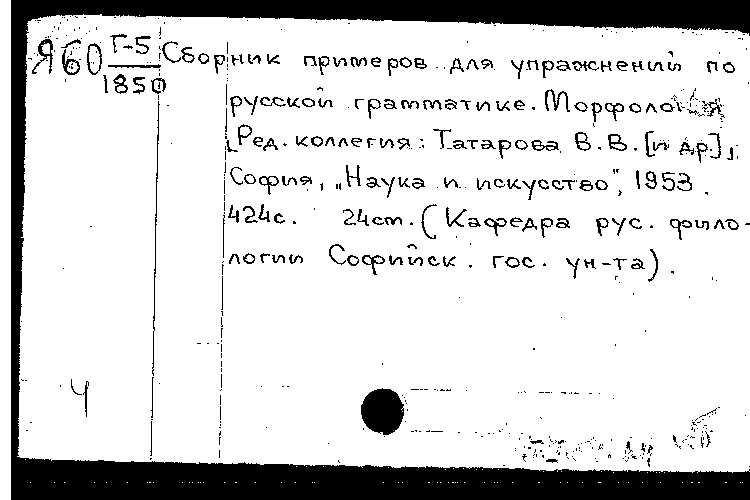 Я60 Г-5 Сборник примеров для упражнений по
1850
русской грамматике. Морфология
[Ред. коллегия: Татарова В.В. [и др.]].
София, „Наука и искусство", 1953.
424с. 24cm. (Кафедра рус. фило-
логии Софийск. гос. ун-та).
Ч